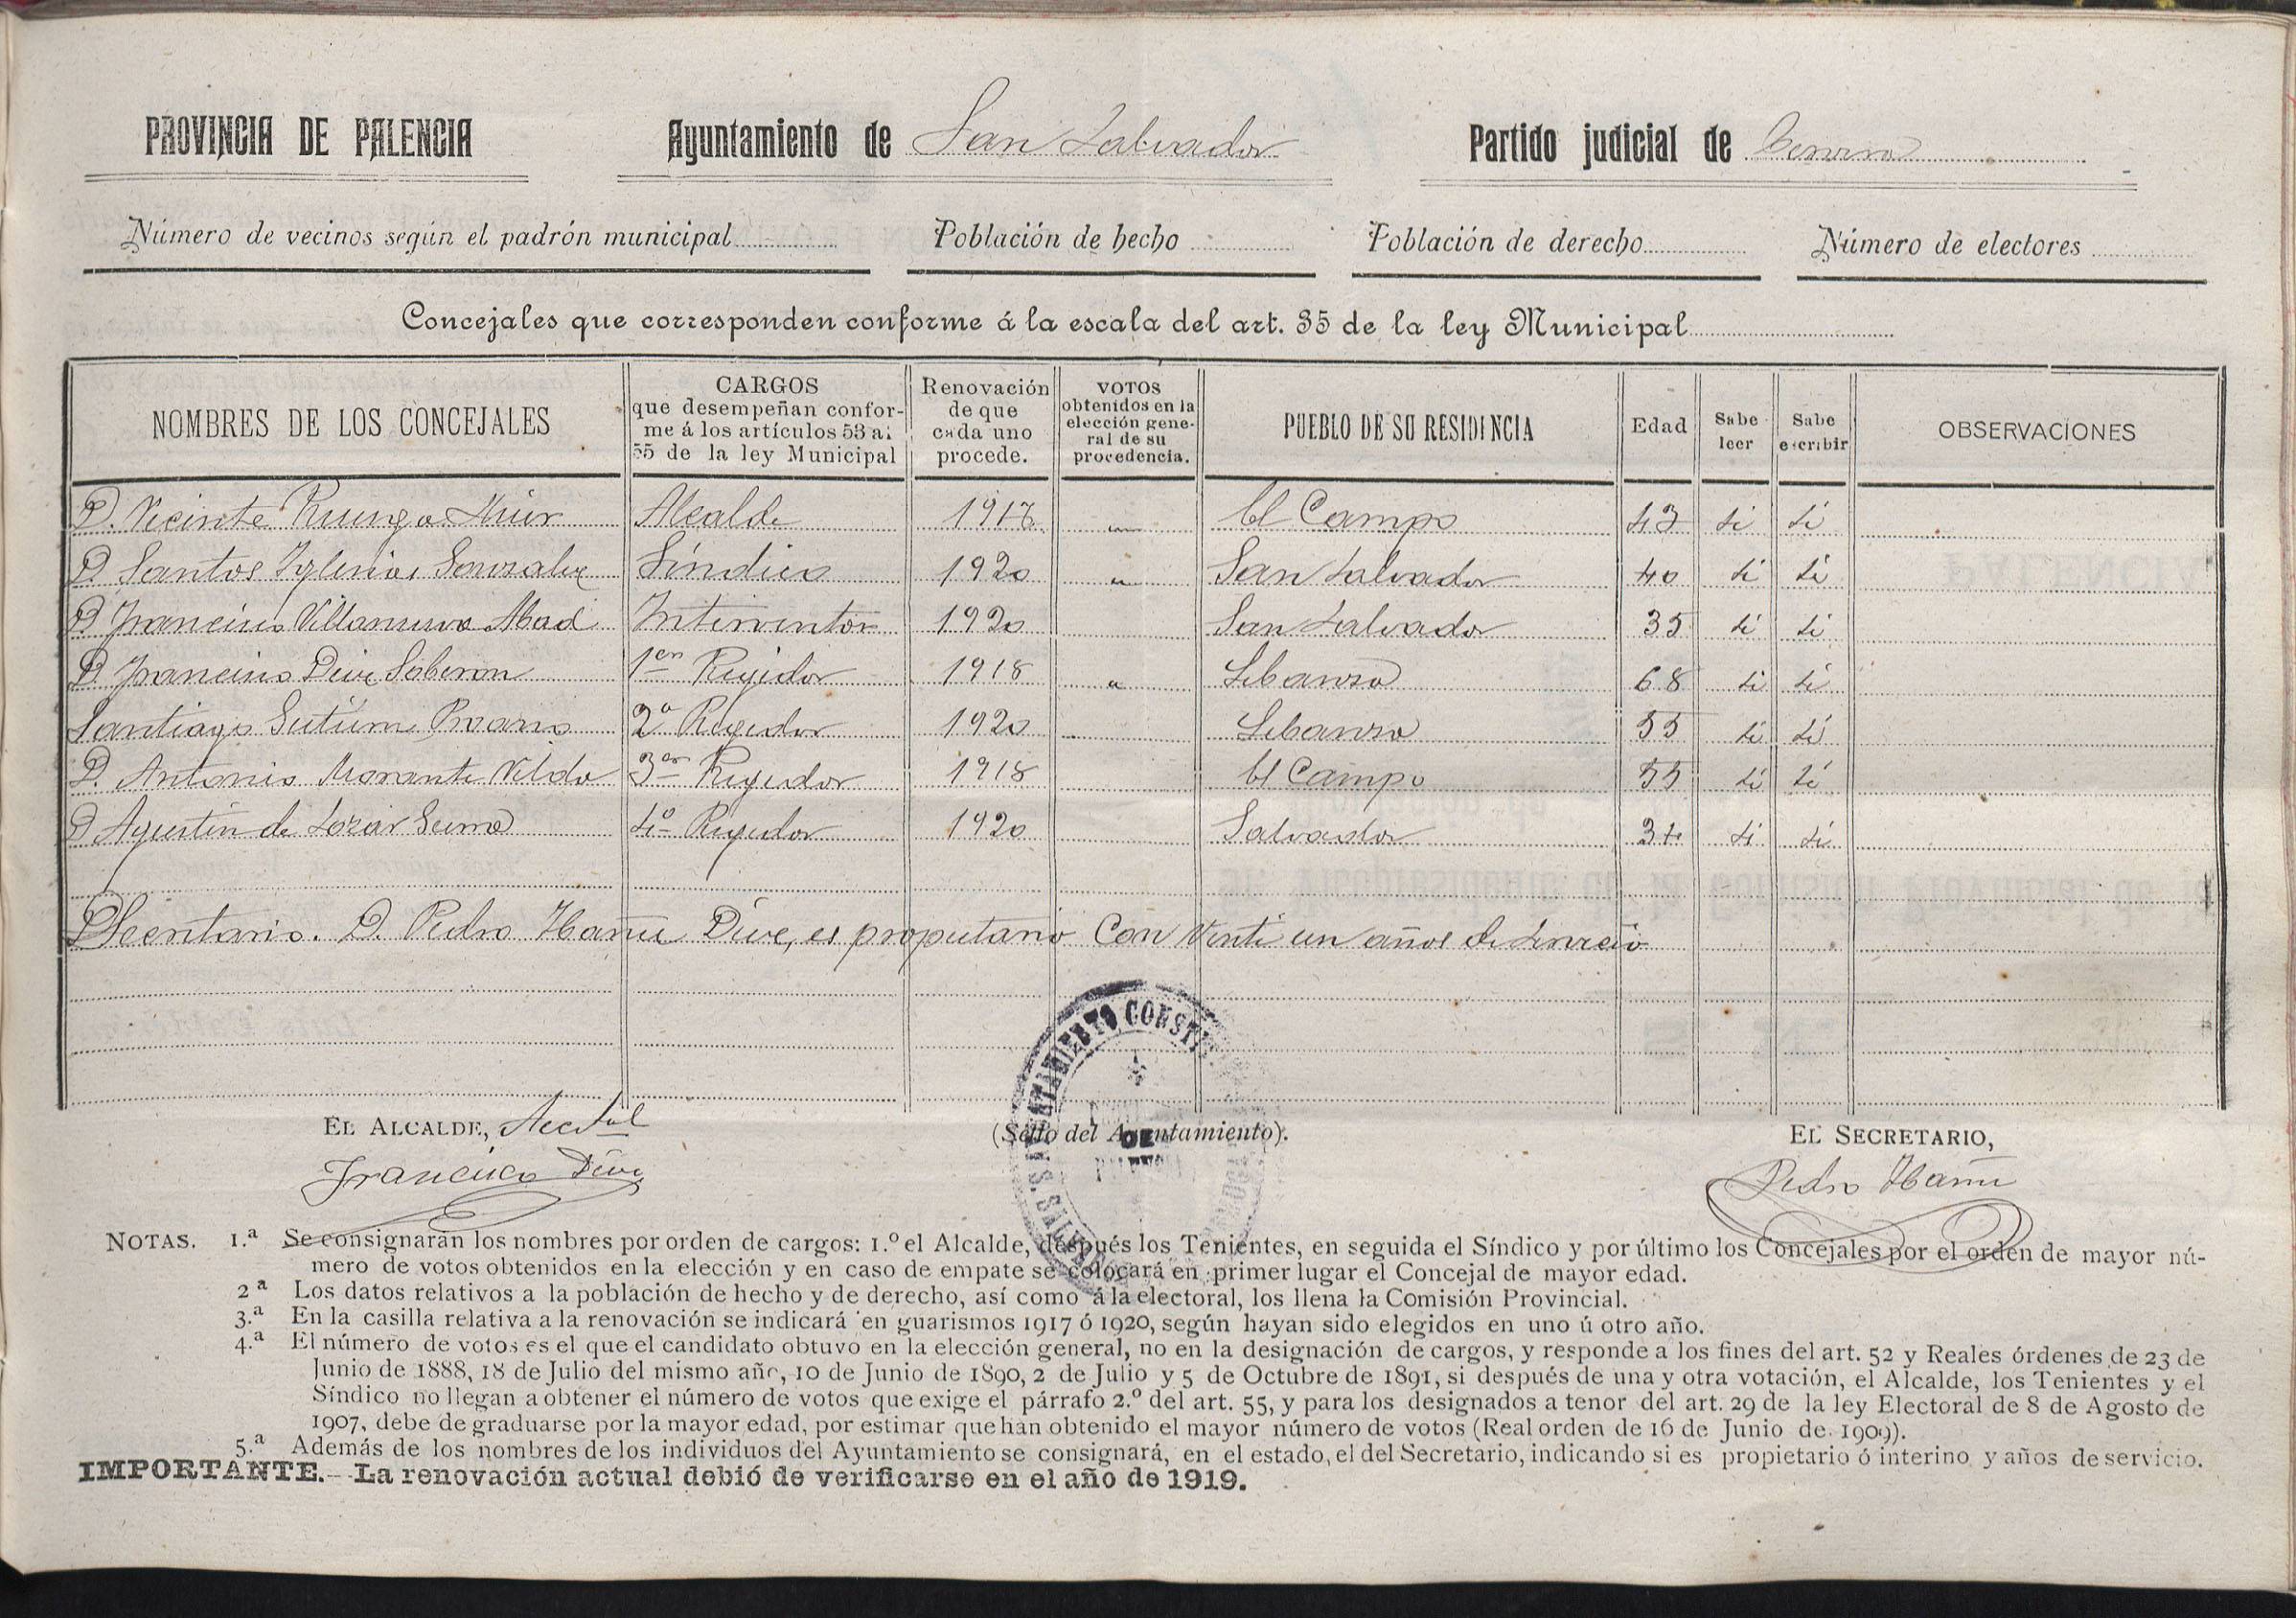 PROVINCIA DE PALENCIA Ayuntamiento de San Salvador Partido judicial de Cervera
Número de vecinos según el padrón municipal Población de hecho Población de derecho Número de electores
Concejales que corresponden conforme á la escala del art. 35 de la ley Municipal
NOMBRES DE LOS CONCEJALES
CARGOS
que desempeñan confor-
me á los artículos 53 al
55 de la ley Municipal
Renovación
de que
cada uno
procede.
VOTOS
obtenidos en la
elección gene-
ral de su
procedencia.
PUEBLO DE SU RESIDENCIA
Edad
Sabe
leer
Sabe
escribir
OBSERVACIONES
D. Vicente Alcalde El Campo 43 si si
D. Santos Iglesias Gonzalez Síndico 1920 " San Salvador 40 si si
D. Francisco Villanueva Abad Interventor 1920 San Salvador 35 si si
D. Francisco Diez Soberon 1er Regidor 1918 " Lebanza 68 si si
Santiago 2º Regidor 1920 Lebanza 55 si si
D. Antonio Morante 3er Regidor 1918 El Campo 55 si si
D Agustin de 4º Regidor 1920 Salvador 34 si si
Secretario. D. Pedro Ibañez Diez, es propietario Con Venti un años de servicio
EL ALCALDE, Acctal
Francisco Diez
(Sello del Ayuntamiento).
AYUNTAMIENTO CONST
DE
EL SECRETARIO,
Pedro Ibañez
NOTAS. 1.ª Se consignarán los nombres por orden de cargos: 1.º el Alcalde, después los Tenientes, en seguida el Síndico y por último los Concejales por el orden de mayor nú-
mero de votos obtenidos en la elección y en caso de empate se colocará en primer lugar el Concejal de mayor edad.
2ª Los datos relativos a la población de hecho y de derecho, así como á la electoral, los llena la Comisión Provincial.
3.ª En la casilla relativa a la renovación se indicará en guarismos 1917 ó 1920, según hayan sido elegidos en uno ú otro año.
4.ª El número de votos es el que el candidato obtuvo en la elección general, no en la designación de cargos, y responde a los fines del art. 52 y Reales órdenes de 23 de
Junio de 1888, 18 de Julio del mismo año, 10 de Junio de 1890, 2 de Julio y 5 de Octubre de 1891, si después de una y otra votación, el Alcalde, los Tenientes y el
Síndico no llegan a obtener el número de votos que exige el párrafo 2.º del art. 55, y para los designados a tenor del art. 29 de la ley Electoral de 8 de Agosto de
1907, debe de graduarse por la mayor edad, por estimar que han obtenido el mayor número de votos (Real orden de 16 de Junio de 1909).
5.ª Además de los nombres de los individuos del Ayuntamiento se consignará, en el estado, el del Secretario, indicando si es propietario ó interino y años de servicio.
IMPORTANTE.—La renovación actual debió de verificarse en el año de 1919.